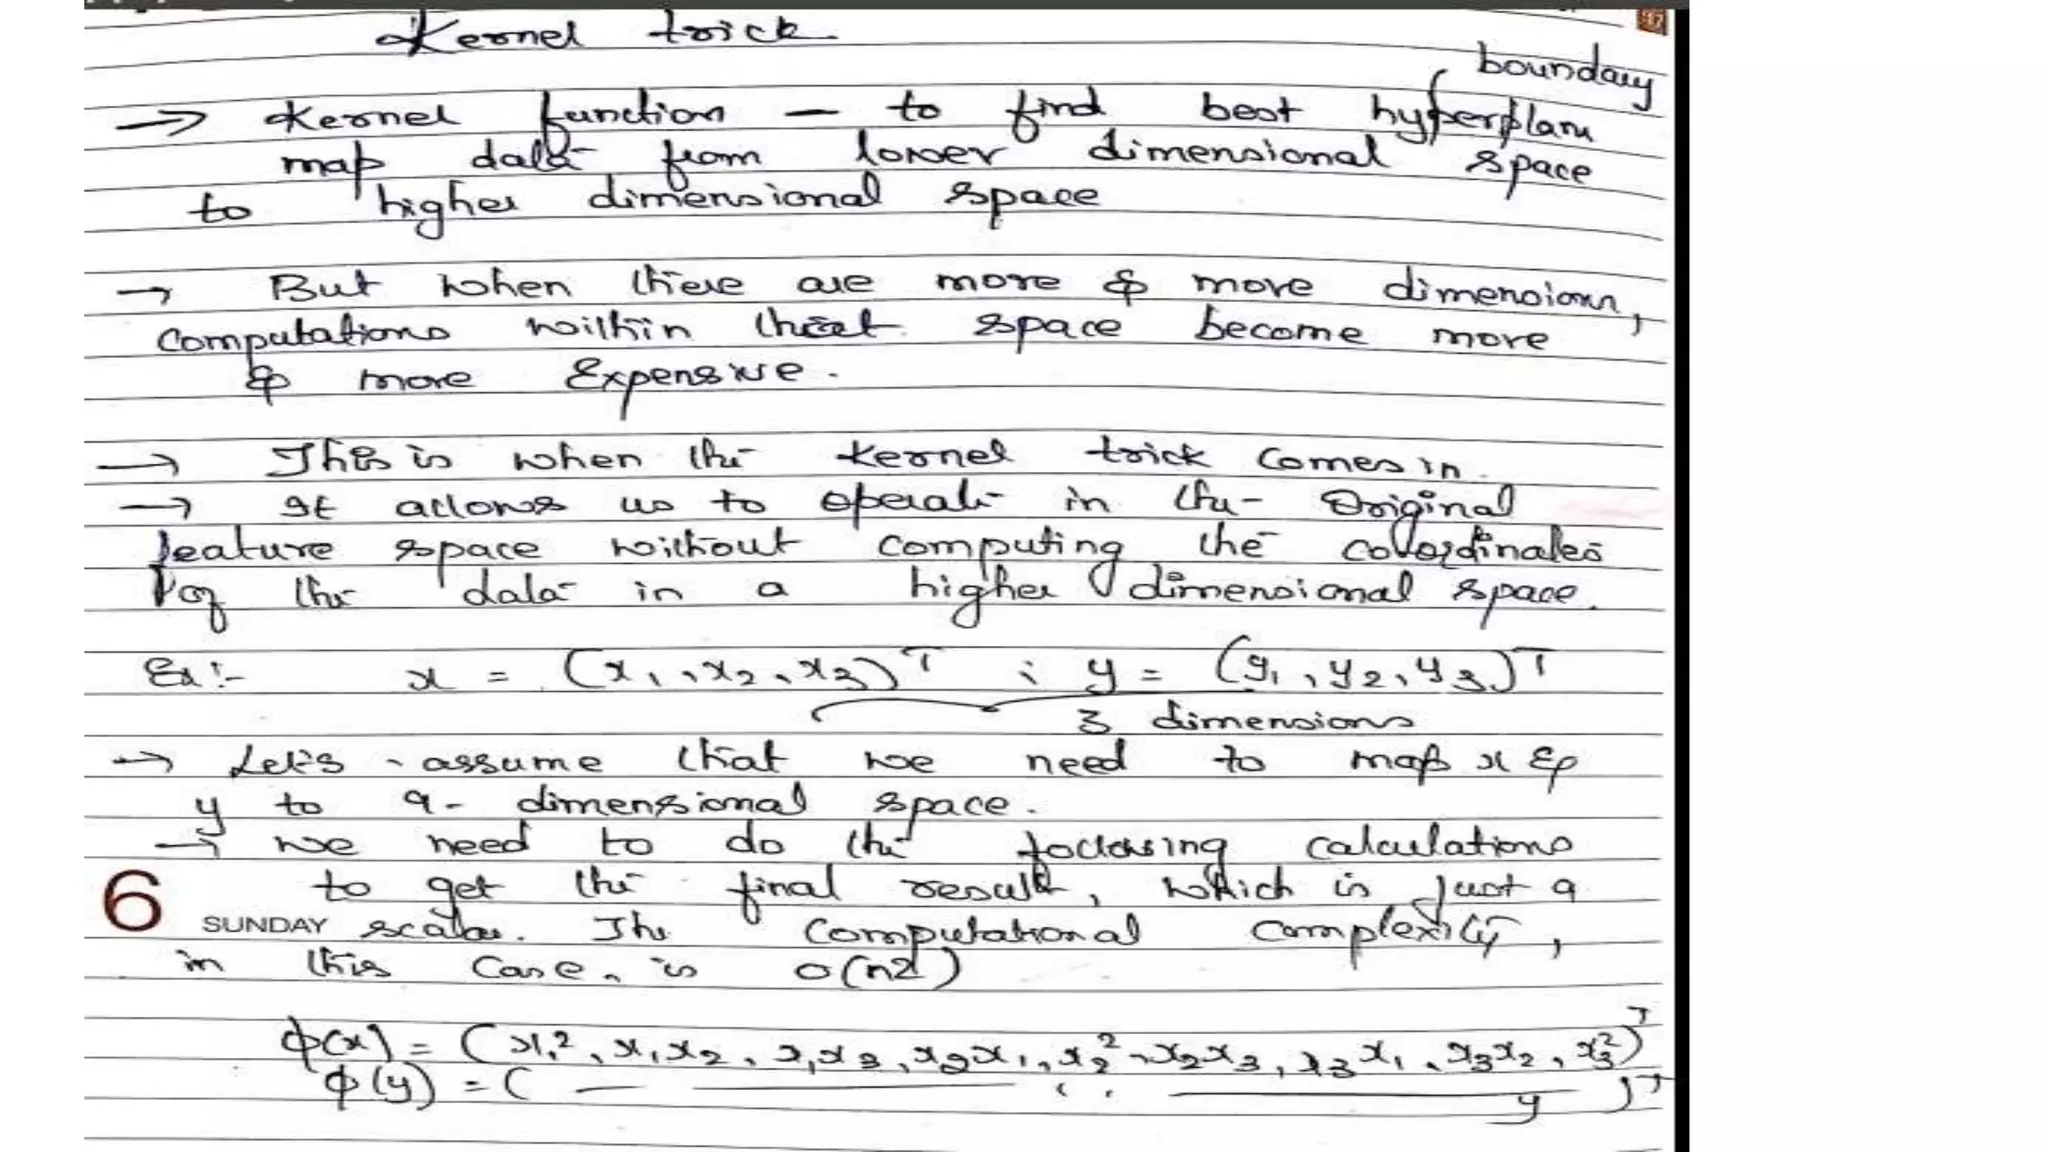 Kernel trick
boundary
→ Kernel function - to find best hyperplane
map data from lower dimensional space
to higher dimensional space
→ But when there are more & more dimensions,
computations within that space become more
& more Expensive.
→ This is when the kernel trick comes in.
→ It allows us to operate in the Original
feature space without computing the coordinates
of the data in a higher dimensional space.
Ex:- x = (x₁, x₂, x₃)ᵀ ; y = (y₁, y₂, y₃)ᵀ
3 dimensions
→ Let's assume that we need to map x &
y to 9- dimensional space.
→ we need to do the following calculations
to get the final result, which is just a
6 SUNDAY scalar. The computational complexity,
in this case, is O(n2)
ϕ(x) = (x₁², x₁x₂, x₁x₃, x₂x₁, x₂², x₂x₃, x₃x₁, x₃x₂, x₃²)ᵀ
ϕ(y) = ( — — ,, — y )ᵀ